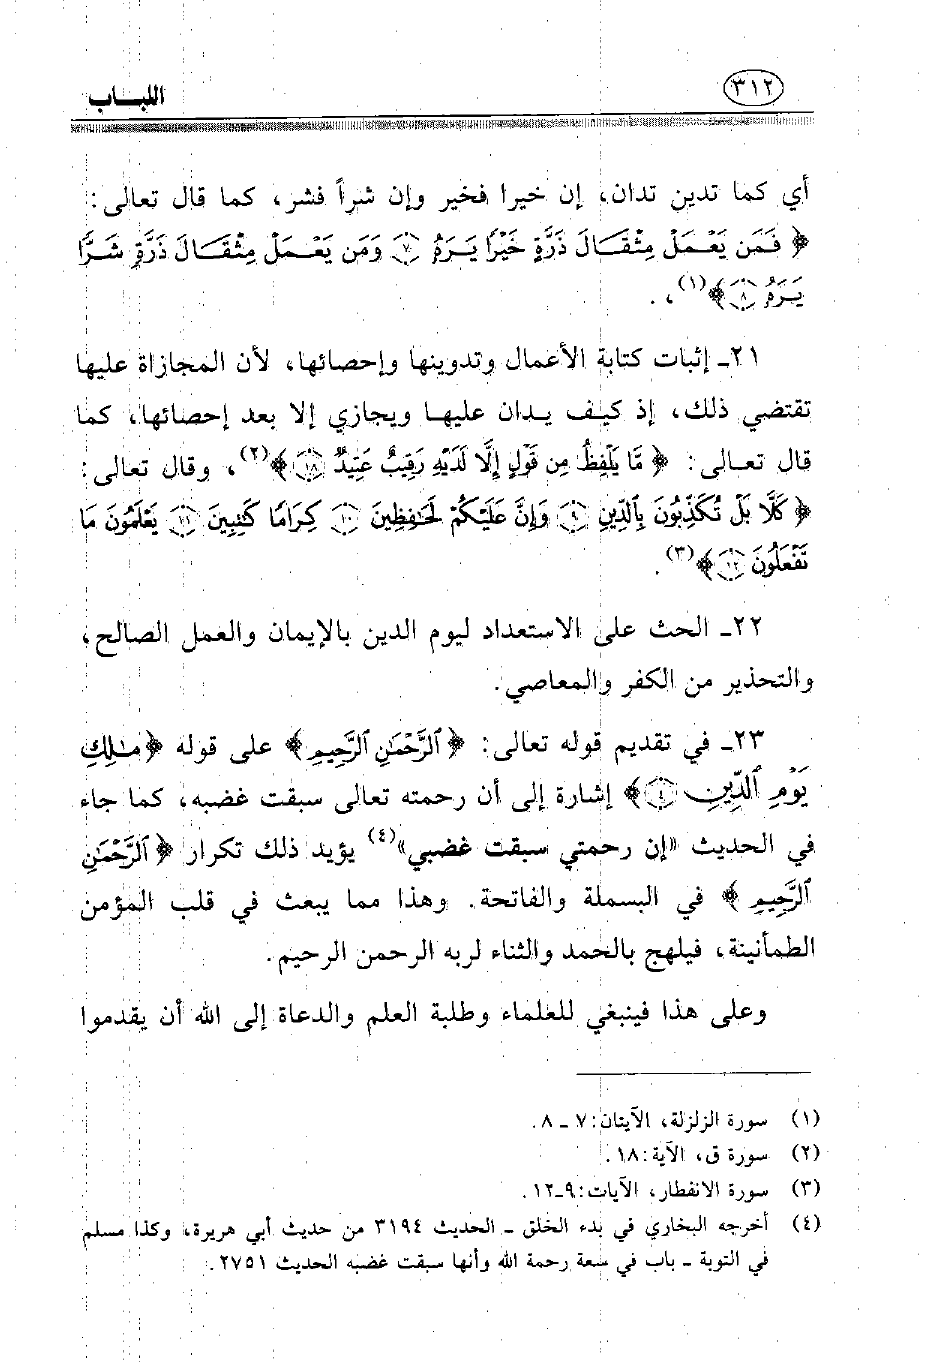 ٣١٢
اللبـــاب
أي كما تدين تدان، إن خيرا فخير وإن شراً فشر، كما قال تعالى:
﴿ فَمَن يَعْمَلْ مِثْقَالَ ذَرَّةٍ خَيْرًا يَرَهُ ٧ وَمَن يَعْمَلْ مِثْقَالَ ذَرَّةٍ شَرًّا
يَرَهُ ٨ ﴾(١)، .
٢١ـ إثبات كتابة الأعمال وتدوينها وإحصائها، لأن المجازاة عليها
تقتضي ذلك، إذ كيف يدان عليها ويجازي إلا بعد إحصائها، كما
قال تعالى: ﴿ مَّا يَلْفِظُ مِن قَوْلٍ إِلَّا لَدَيْهِ رَقِيبٌ عَتِيدٌ ١٨ ﴾(٢)، وقال تعالى:
﴿ كَلَّا بَلْ تُكَذِّبُونَ بِالدِّينِ ٩ وَإِنَّ عَلَيْكُمْ لَحَافِظِينَ ١٠ كِرَامًا كَٰتِبِينَ ١١ يَعْلَمُونَ مَا
تَفْعَلُونَ ١٢ ﴾(٣).
٢٢ـ الحث على الاستعداد ليوم الدين بالإيمان والعمل الصالح،
والتحذير من الكفر والمعاصي.
٢٣ـ في تقديم قوله تعالى: ﴿ ٱلرَّحْمَٰنِ ٱلرَّحِيمِ ﴾ على قوله ﴿ مَٰلِكِ
يَوْمِ ٱلدِّينِ ٤ ﴾ إشارة إلى أن رحمته تعالى سبقت غضبه، كما جاء
في الحديث «إن رحمتي سبقت غضبي»(٤) يؤيد ذلك تكرار ﴿ ٱلرَّحْمَٰنِ
ٱلرَّحِيمِ ﴾ في البسملة والفاتحة. وهذا مما يبعث في قلب المؤمن
الطمأنينة، فيلهج بالحمد والثناء لربه الرحمن الرحيم.
وعلى هذا فينبغي للعلماء وطلبة العلم والدعاة إلى الله أن يقدموا
(١) سورة الزلزلة، الآيتان: ٧ ـ ٨.
(٢) سورة ق، الآية: ١٨.
(٣) سورة الانفطار، الآيات: ٩ـ١٢.
(٤) أخرجه البخاري في بدء الخلق ـ الحديث ٣١٩٤ من حديث أبي هريرة، وكذا مسلم
في التوبة ـ باب في سعة رحمة الله وأنها سبقت غضبه الحديث ٢٧٥١.